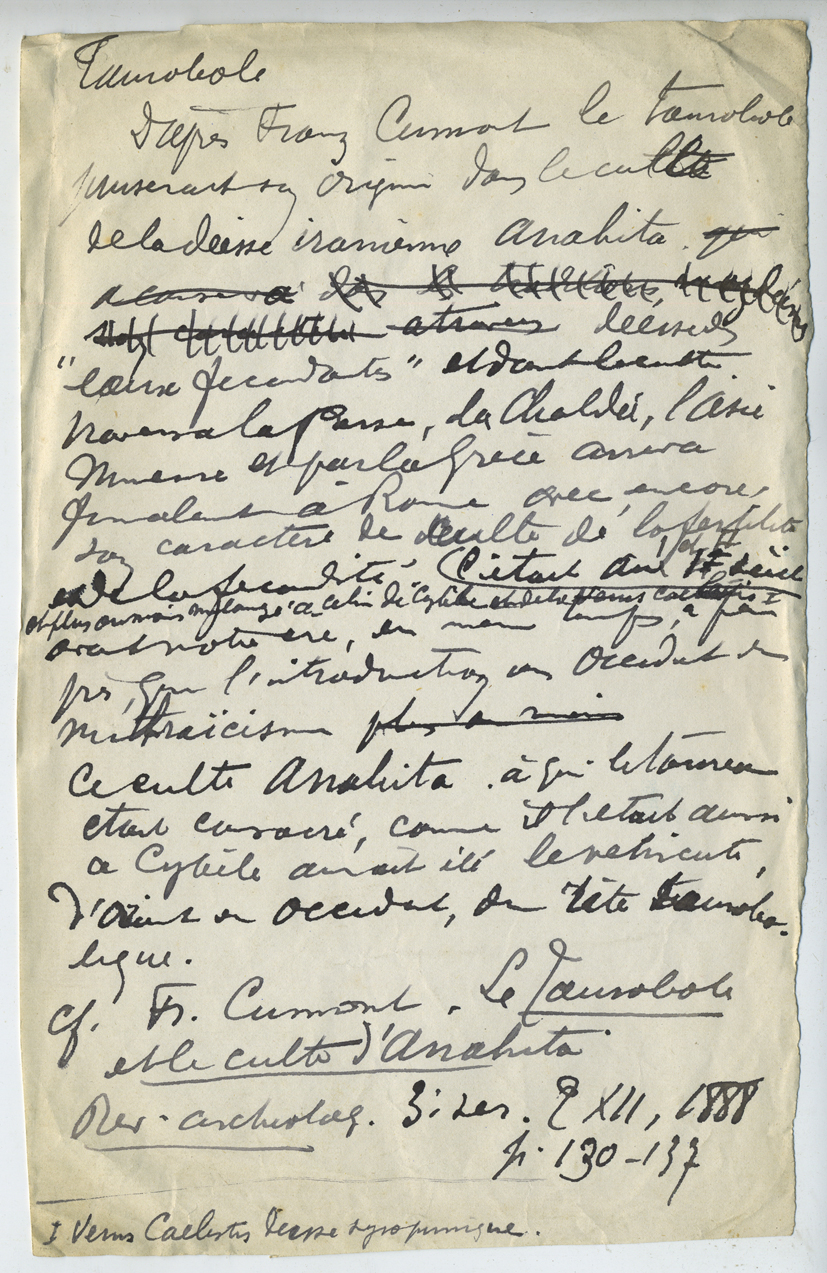 Taurobole
D'après Franz Cumont le taurobole
puiserait son origine dans le culte
de la déesse iranienne Anahita. qui
a consacré
à travers déesse des
"eaux fécondantes" et dont le culte
traversa la Perse, la Chaldée, l'Asie
Mineure et par la Grèce arriva
finalement à Rome avec, encore,
son caractère de culte de la fertilité
et de la fécondité. C'était au Ier siècle
et plus ou moins mélangé à celui de Cybèle et de la Venus Caelestis I
avant notre ère, en même temps, à peu
près, que l'introduction en Occident du
mithraïcisme plus ou moins
Ce culte Anahita . à qui le taureau
était consacré, comme il l'était aussi
à Cybèle aurait été le véhicule,
d'Orient en Occident, du rite taurobo-
lique.
cf. Fr. Cumont. Le Taurobole
et le culte d'Anahita
Rev. archéolog. 3: ser. T XII, 1888
p. 130-137
I Venus Caelestis déesse syropunique.